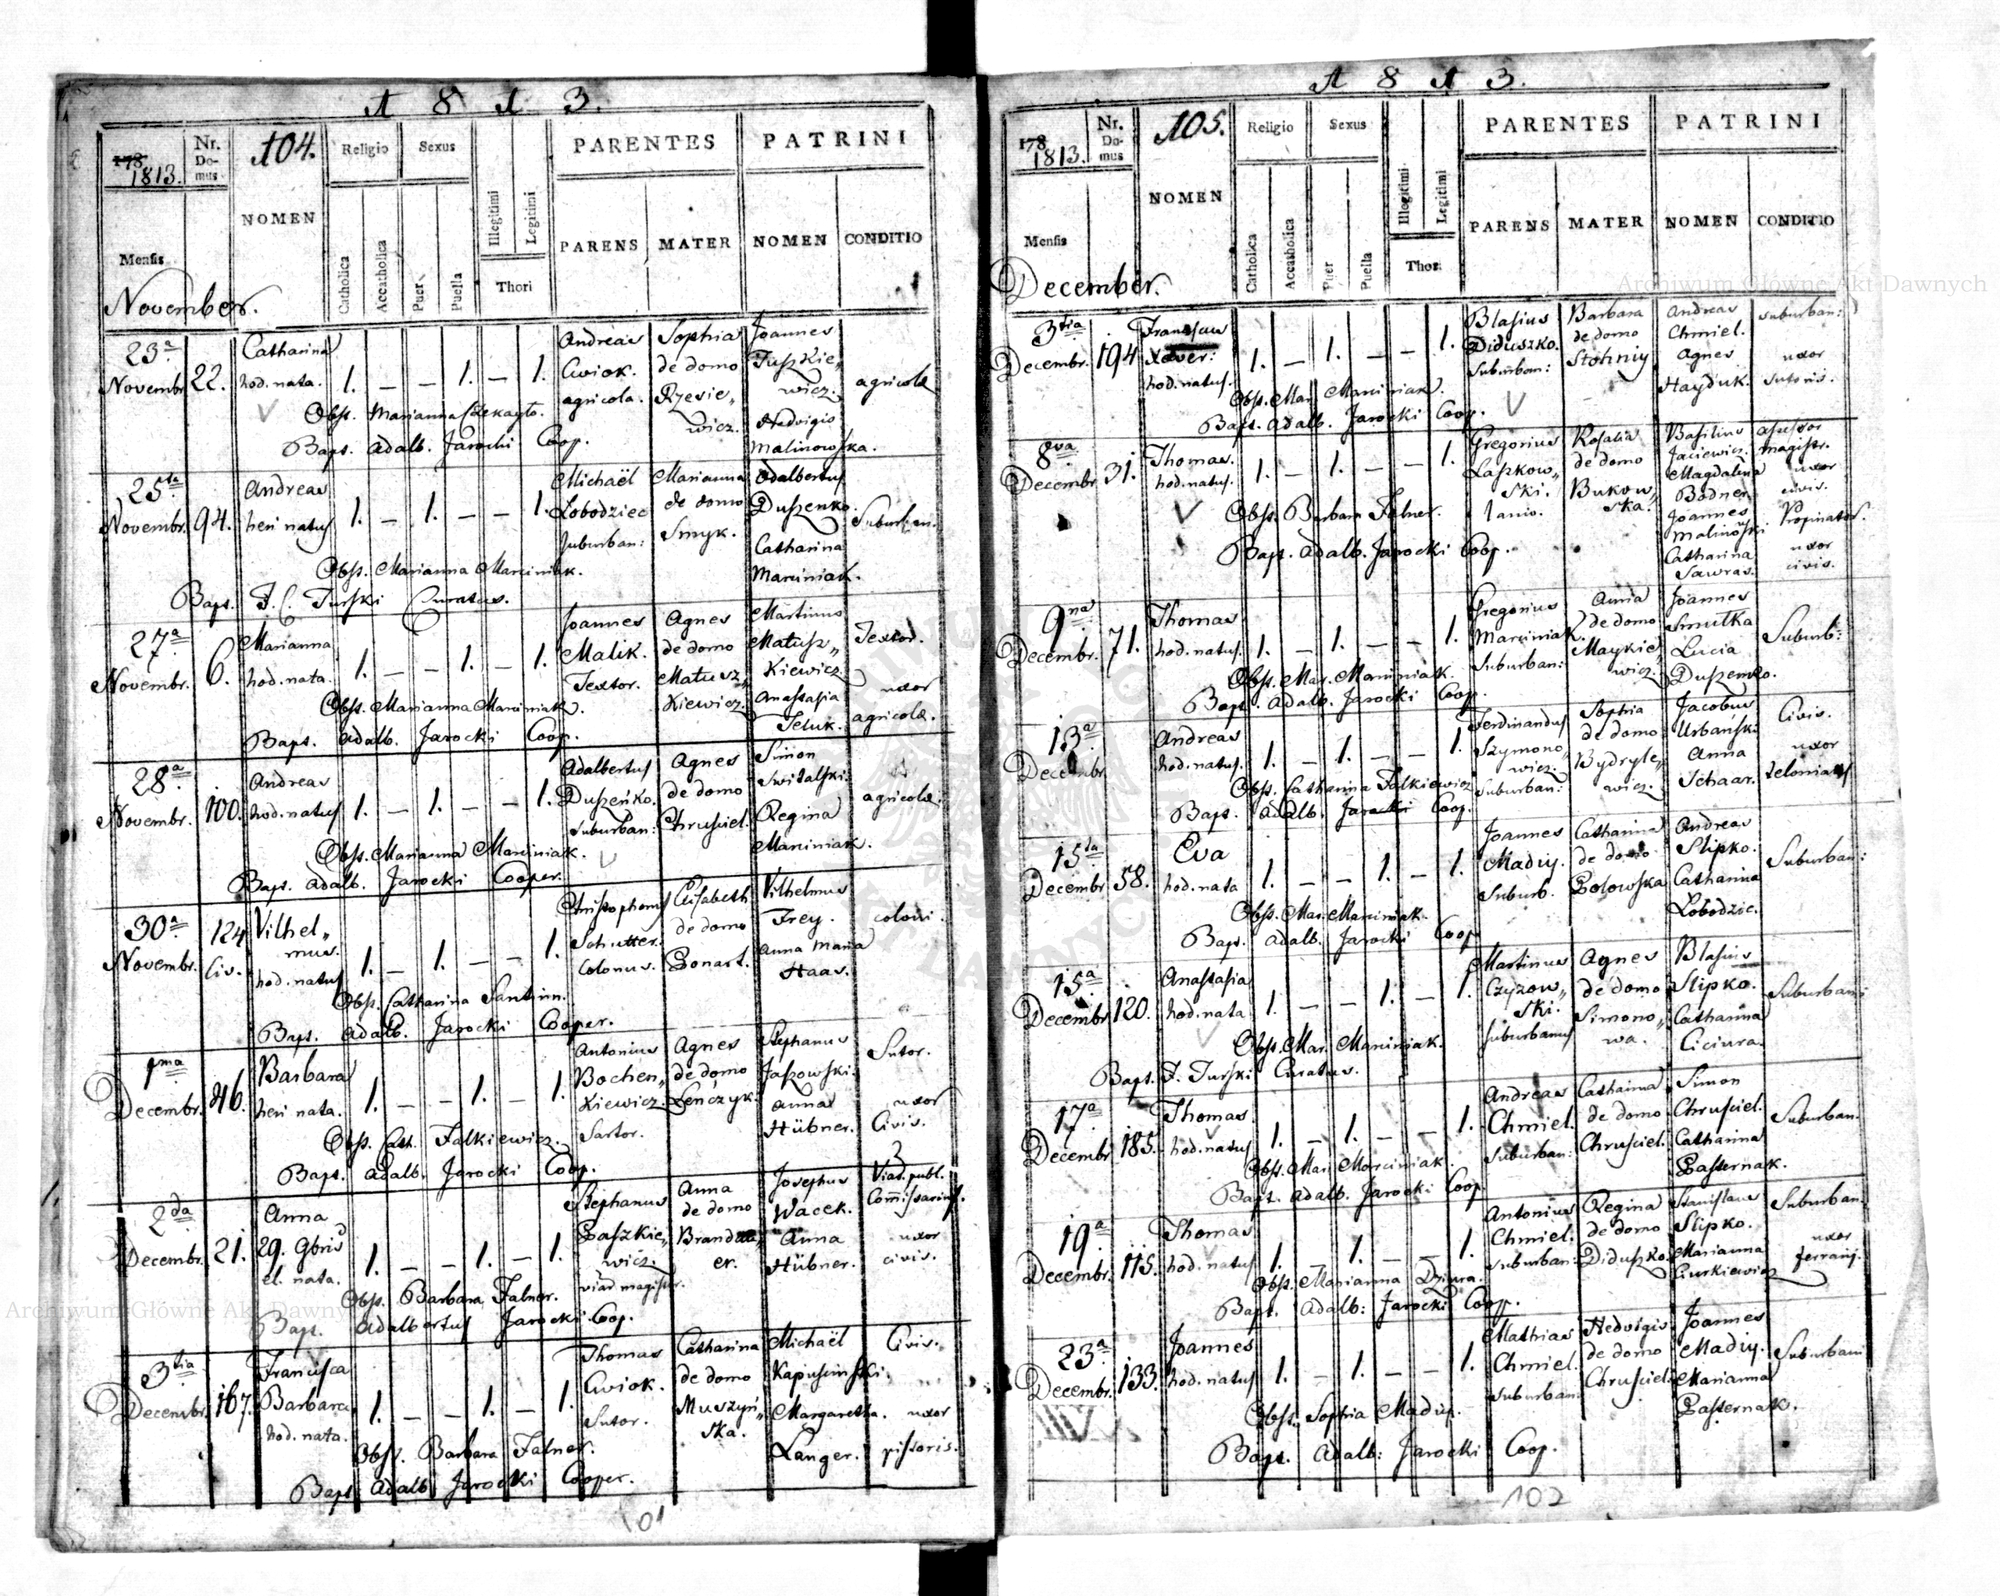 1813.
178
1813.
Nr.
Do-
mus
104.
NOMEN
Religio
Sexus
Catholica
Accatholica
Puer
Puella
Illegitimi
Legitimi
Thori
PARENTES
PATRINI
PARENS
MATER
NOMEN
CONDITIO
Mensis
November.
23a
Novembr.
22.
Catharina
hod. nata.
1. — — 1. — 1.
Andreas
Cwiok.
agricola.
Sophia
de domo
Rzesie„
wicz.
Joannes
Tuszkie„
wicz.
Hedvigis
Malinowska.
agricolæ
Obst. Marianna
Baps. Adalb. Jarocki Coop.
25ta
Novembr.
94.
Andreas
heri natus
1. — 1. — — 1.
Michaël
Lobodziec
suburban:
Marianna
de domo
Smyk.
Adalbertus
Duszenko.
Catharina
Marciniak.
Suburban.
Obst. Marianna Marciniak.
Baps. F. C. Turski Curatus.
27a
Novembr.
6.
Marianna
hod. nata.
1. — — 1. — 1.
Joannes
Malik.
Textor.
Agnes
de domo
Matusz„
kiewicz.
Martinus
Matusz„
kiewicz
Anastasia
Teluk.
Textor.
uxor
agricolæ.
Obst. Marianna Marciniak.
Baps. Adalb. Jarocki Coop.
28a
Novembr.
100.
Andreas
hod. natus
1. — 1. — — 1.
Adalbertus
Duszeńko.
suburban:
Agnes
de domo
Chrusciel.
Simon
Switalski.
Regina
Marciniak.
agricolæ.
Obst. Marianna Marciniak.
Baps. Adalb. Jarocki Cooper.
30a
Novembr.
124
Civ.
Vilhel„
mus.
hod. natus
1. — 1. — — 1.
Christophorus
Schutter.
Colonus.
Elisabeth
de domo
Bonart.
Vilhelmus
Frey.
Anna Maria
Haas.
coloni.
Obst. Catharina Santim.
Baps. Adalb. Jarocki Cooper.
1ma
Decembr.
46.
Barbara
heri nata.
1. — — 1. — 1.
Antonius
Bochen„
kiewicz.
Sartor.
Agnes
de domo
Leńczyk.
Stephanus
Jaszowski.
Anna
Hübner.
Sutor.
uxor
Civis.
Obst. Cath. Falkiewicz.
Baps. Adalb. Jarocki Coop.
2da
Decembr.
21.
Anna
29. 9bris
el. nata.
1. — — 1. — 1.
Stephanus
Paszkie„
wicz.
viar magister.
Anna
de domo
Brand„
er.
Josephus
Wacek.
Anna
Hübner.
Viar. publ.
Comissarius.
uxor
civis.
Obst. Barbara Falner.
Baps. Adalbertus Jarocki Coop.
3tia
Decembr.
167.
Francisca
Barbara
hod. nata.
1. — — 1. — 1.
Thomas
Cwiok.
Sutor.
Catharina
de domo
Muszyń„
ska.
Michaël
Kapuscinski.
Margaretha.
Langer.
Civis.
uxor
pistoris.
Obst. Barbara Falner.
Baps. Adalb. Jarocki Cooper.
101
1813.
178
1813.
Nr.
Do-
mus
105.
NOMEN
Religio
Sexus
Catholica
Accatholica
Puer
Puella
Illegitimi
Legitimi
Thori
PARENTES
PATRINI
PARENS
MATER
NOMEN
CONDITIO
Mensis
December.
3tia
Decembr.
194
Franciscus
Xaver:
hod. natus.
1. — 1. — — 1.
Blasius
Diduszko.
suburban:
Barbara
de domo
Stohniy
Andreas
Chmiel.
Agnes
Hayduk.
suburban:
uxor
sutoris.
Obst. Mar. Marciniak.
Baps. Adalb. Jarocki Coop.
8va
Decembr.
31.
Thomas.
hod. natus.
1. — 1. — — 1.
Gregorius
Laszkow„
ski.
Lanio.
Rosalia
de domo
Bukow„
ska.
Basilius
Jaciewicz.
Magdalena
Bodner.
Joannes
Malinoski.
Catharina
Sawras.
assessor
magistr.
uxor
civis.
Propinator.
uxor
civis.
Obst. Barbara Falner.
Baps. Adalb. Jarocki Coop.
9na
Decembr.
71.
Thomas
hod. natus.
1. — 1. — — 1.
Gregorius
Marciniak.
suburban:
Anna
de domo
Maykie„
wicz.
Joannes
Smutka
Lucia
Duszenko.
Suburb:
Obst. Mar. Marciniak.
Baps. Adalb. Jarocki Coop.
13a
Decembr.
Andreas
hod. natus.
1. — 1. — — 1.
Ferdinandus
Szymono„
wicz.
suburban:
Sophia
de domo
Wydryle„
wicz.
Jacobus
Urbański.
Anna
Schaar.
Civis.
uxor
Obst. Catharina Falkiewicz
Baps. Adalb. Jarocki Coop.
15ta
Decembr.
58.
Eva
hod. nata
1. — — 1. — 1.
Joannes
Madiy.
suburb.
Catharina
de domo
Polowska
Andreas
Slipko.
Catharina
Lobodzic.
Suburban:
Obst. Mar. Marciniak.
Baps. Adalb. Jarocki Coop
15a
Decembr.
120.
Anastasia
hod. nata
1. — — 1. — 1.
Martinus
Czyzow„
ski.
suburbanus
Agnes
de domo
Simono„
wa.
Blasius
Slipko.
Catharina
Ciciura.
Suburban:
Obst. Mar. Marciniak.
Baps. F. Turski Curatus.
17a
Decembr.
185.
Thomas.
hod. natus
1. — 1. — — 1.
Andreas
Chmiel.
suburban:
Catharina
de domo
Chrusciel.
Simon
Chrusciel.
Catharina
Pasternak.
Suburban.
Obst. Mar. Marciniak.
Baps. Adalb. Jarocki Coop.
19a
Decembr.
115.
Thomas
hod. natus
1. — 1. — — 1.
Antonius
Chmiel.
suburban:
Regina
de domo
Diduszko.
Stanislaus
Slipko.
Marianna
Ciurkiewicz
Suburban.
uxor
ferrarij.
Obst. Marianna Dziura.
Baps. Adalb: Jarocki Coop.
23a
Decembr.
133.
Joannes
hod. natus
1. — 1. — — 1.
Mathias
Chmiel.
suburban:
Hedvigis
de domo
Chrusciel.
Joannes
Madiy.
Marianna
Pasternak.
Suburbani
Obst. Sophia Madiy.
Baps. Adalb: Jarocki Coop.
102
Archiwum Główne Akt Dawnych
Archiwum Główne Akt Dawnych